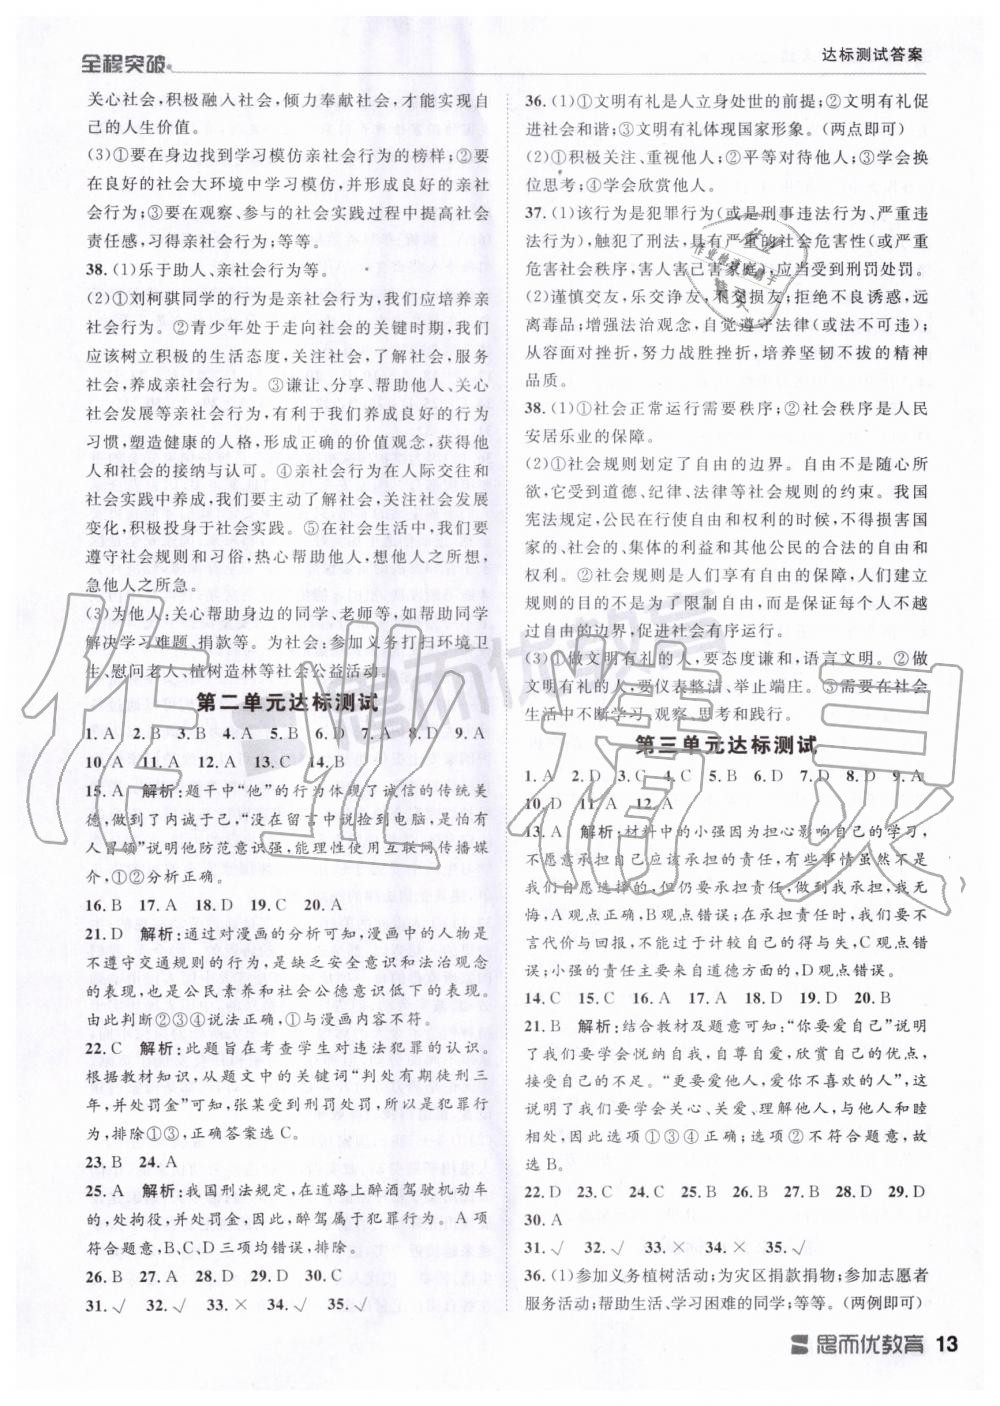 全程突破
达标测试答案
关心社会,积极融入社会,倾力奉献社会,才能实现自
己的人生价值。
(3)①要在身边找到学习模仿亲社会行为的榜样;②要
在良好的社会大环境中学习模仿,并形成良好的亲社
会行为;③要在观察、参与的社会实践过程中提高社会
责任感,习得亲社会行为;等等。
38.(1)乐于助人、亲社会行为等。
(2)①刘柯骐同学的行为是亲社会行为,我们应培养亲
社会行为。②青少年处于走向社会的关键时期,我们
应该树立积极的生活态度,关注社会,了解社会,服务
社会,养成亲社会行为。③谦让、分享、帮助他人、关心
社会发展等亲社会行为,有利于我们养成良好的行为
习惯,塑造健康的人格,形成正确的价值观念,获得他
人和社会的接纳与认可。④亲社会行为在人际交往和
社会实践中养成,我们要主动了解社会,关注社会发展
变化,积极投身于社会实践。⑤在社会生活中,我们要
遵守社会规则和习俗,热心帮助他人,想他人之所想,
急他人之所急。
(3)为他人:关心帮助身边的同学、老师等,如帮助同学
解决学习难题、捐款等。为社会:参加义务打扫环境卫
生、慰问老人、植树造林等社会公益活动。
第二单元达标测试
1. A 2. B 3. B 4. A 5. B 6. D 7. A 8. D 9. A
10. A 11. A 12. B 13. C 14. B
15. A 解析:题干中“他”的行为体现了诚信的传统美
德,做到了内诚于己,“没在留言中说捡到电脑,是怕有
人冒领”说明他防范意识强,能理性使用互联网传播媒
介,①②分析正确。
16. B 17. A 18. D 19. C 20. A
21. D 解析:通过对漫画的分析可知,漫画中的人物是
不遵守交通规则的行为,是缺乏安全意识和法治观念
的表现,也是公民素养和社会公德意识低下的表现。
由此判断②③④说法正确,①与漫画内容不符。
22. C 解析:此题旨在考查学生对违法犯罪的认识。
根据教材知识,从题文中的关键词“判处有期徒刑三
年,并处罚金”可知,张某受到刑罚处罚,所以是犯罪行
为,排除①③,正确答案选C。
23. B 24. A
25. A 解析:我国刑法规定,在道路上醉酒驾驶机动车
的,处拘役,并处罚金,因此,醉驾属于犯罪行为。A项
符合题意,B、C、D三项均错误,排除。
26. B 27. A 28. D 29. D 30. C
31. √ 32. √ 33. × 34. √ 35. √
36.(1)①文明有礼是人立身处世的前提;②文明有礼促
进社会和谐;③文明有礼体现国家形象。(两点即可)
(2)①积极关注、重视他人;②平等对待他人;③学会换
位思考;④学会欣赏他人。
37.(1)该行为是犯罪行为(或是刑事违法行为、严重违
法行为),触犯了刑法,具有严重的社会危害性(或严重
危害社会秩序,害人害己害家庭),应当受到刑罚处罚。
(2)谨慎交友,乐交诤友,不交损友;拒绝不良诱惑,远
离毒品;增强法治观念,自觉遵守法律(或法不可违);
从自身做起,努力战胜挫折,培养坚韧不拔的精神
品质。
38.(1)①社会正常运行需要秩序;②社会秩序是人民
安居乐业的保障。
(2)①社会规则划定了自由的边界。自由不是随心所
欲,它受到道德、纪律、法律等社会规则的约束。我国
宪法规定,公民在行使自由和权利的时候,不得损害国
家的、社会的、集体的利益和其他公民的合法的自由和
权利。②社会规则是人们享有自由的保障,人们建立
规则的目的不是为了限制自由,而是保证每个人不越
过自由的边界,促进社会有序运行。
(3)①做文明有礼的人,要态度谦和,语言文明。②做
文明有礼的人,要仪表整洁、举止端庄。③需要在社会
生活中不断学习、观察、思考和践行。
第三单元达标测试
1. A 2. D 3. C 4. C 5. B 6. D 7. D 8. D 9. A
10. D 11. A 12. A
13. A 解析:材料中的小强因为担心影响自己的学习,
不愿意承担自己应该承担的责任,有些事情虽然不是
我们自愿选择的,但仍要承担责任,做到我承担,我无
悔,A观点正确,B观点错误;在承担责任时,我们要不
言代价与回报,不能过于计较自己的得与失,C观点错
误;小强的责任主要来自道德方面的,D观点错误。
14. C 15. C 16. A 17. B 18. A 19. D 20. B
21. B 解析:结合教材及题意可知:“你要爱自己”说明
了我们要学会悦纳自我,自尊自爱,欣赏自己的优点,
接受自己的不足。“更要爱他人,爱你不喜欢的人”,这
说明了我们要学会关心、关爱、理解他人,与他人和睦
相处,因此选项①③④正确,选项②不符合题意,故
选B。
22. D 23. D 24. C 25. B 26. B 27. B 28. D 29. D
30. A
31. √ 32. √ 33. × 34. × 35. √
36.(1)参加义务植树活动;为灾区捐款捐物;参加志愿者
服务活动;帮助生活、学习困难的同学;等等。(两例即可)
思而优教育 13
作业精灵
思而优教育